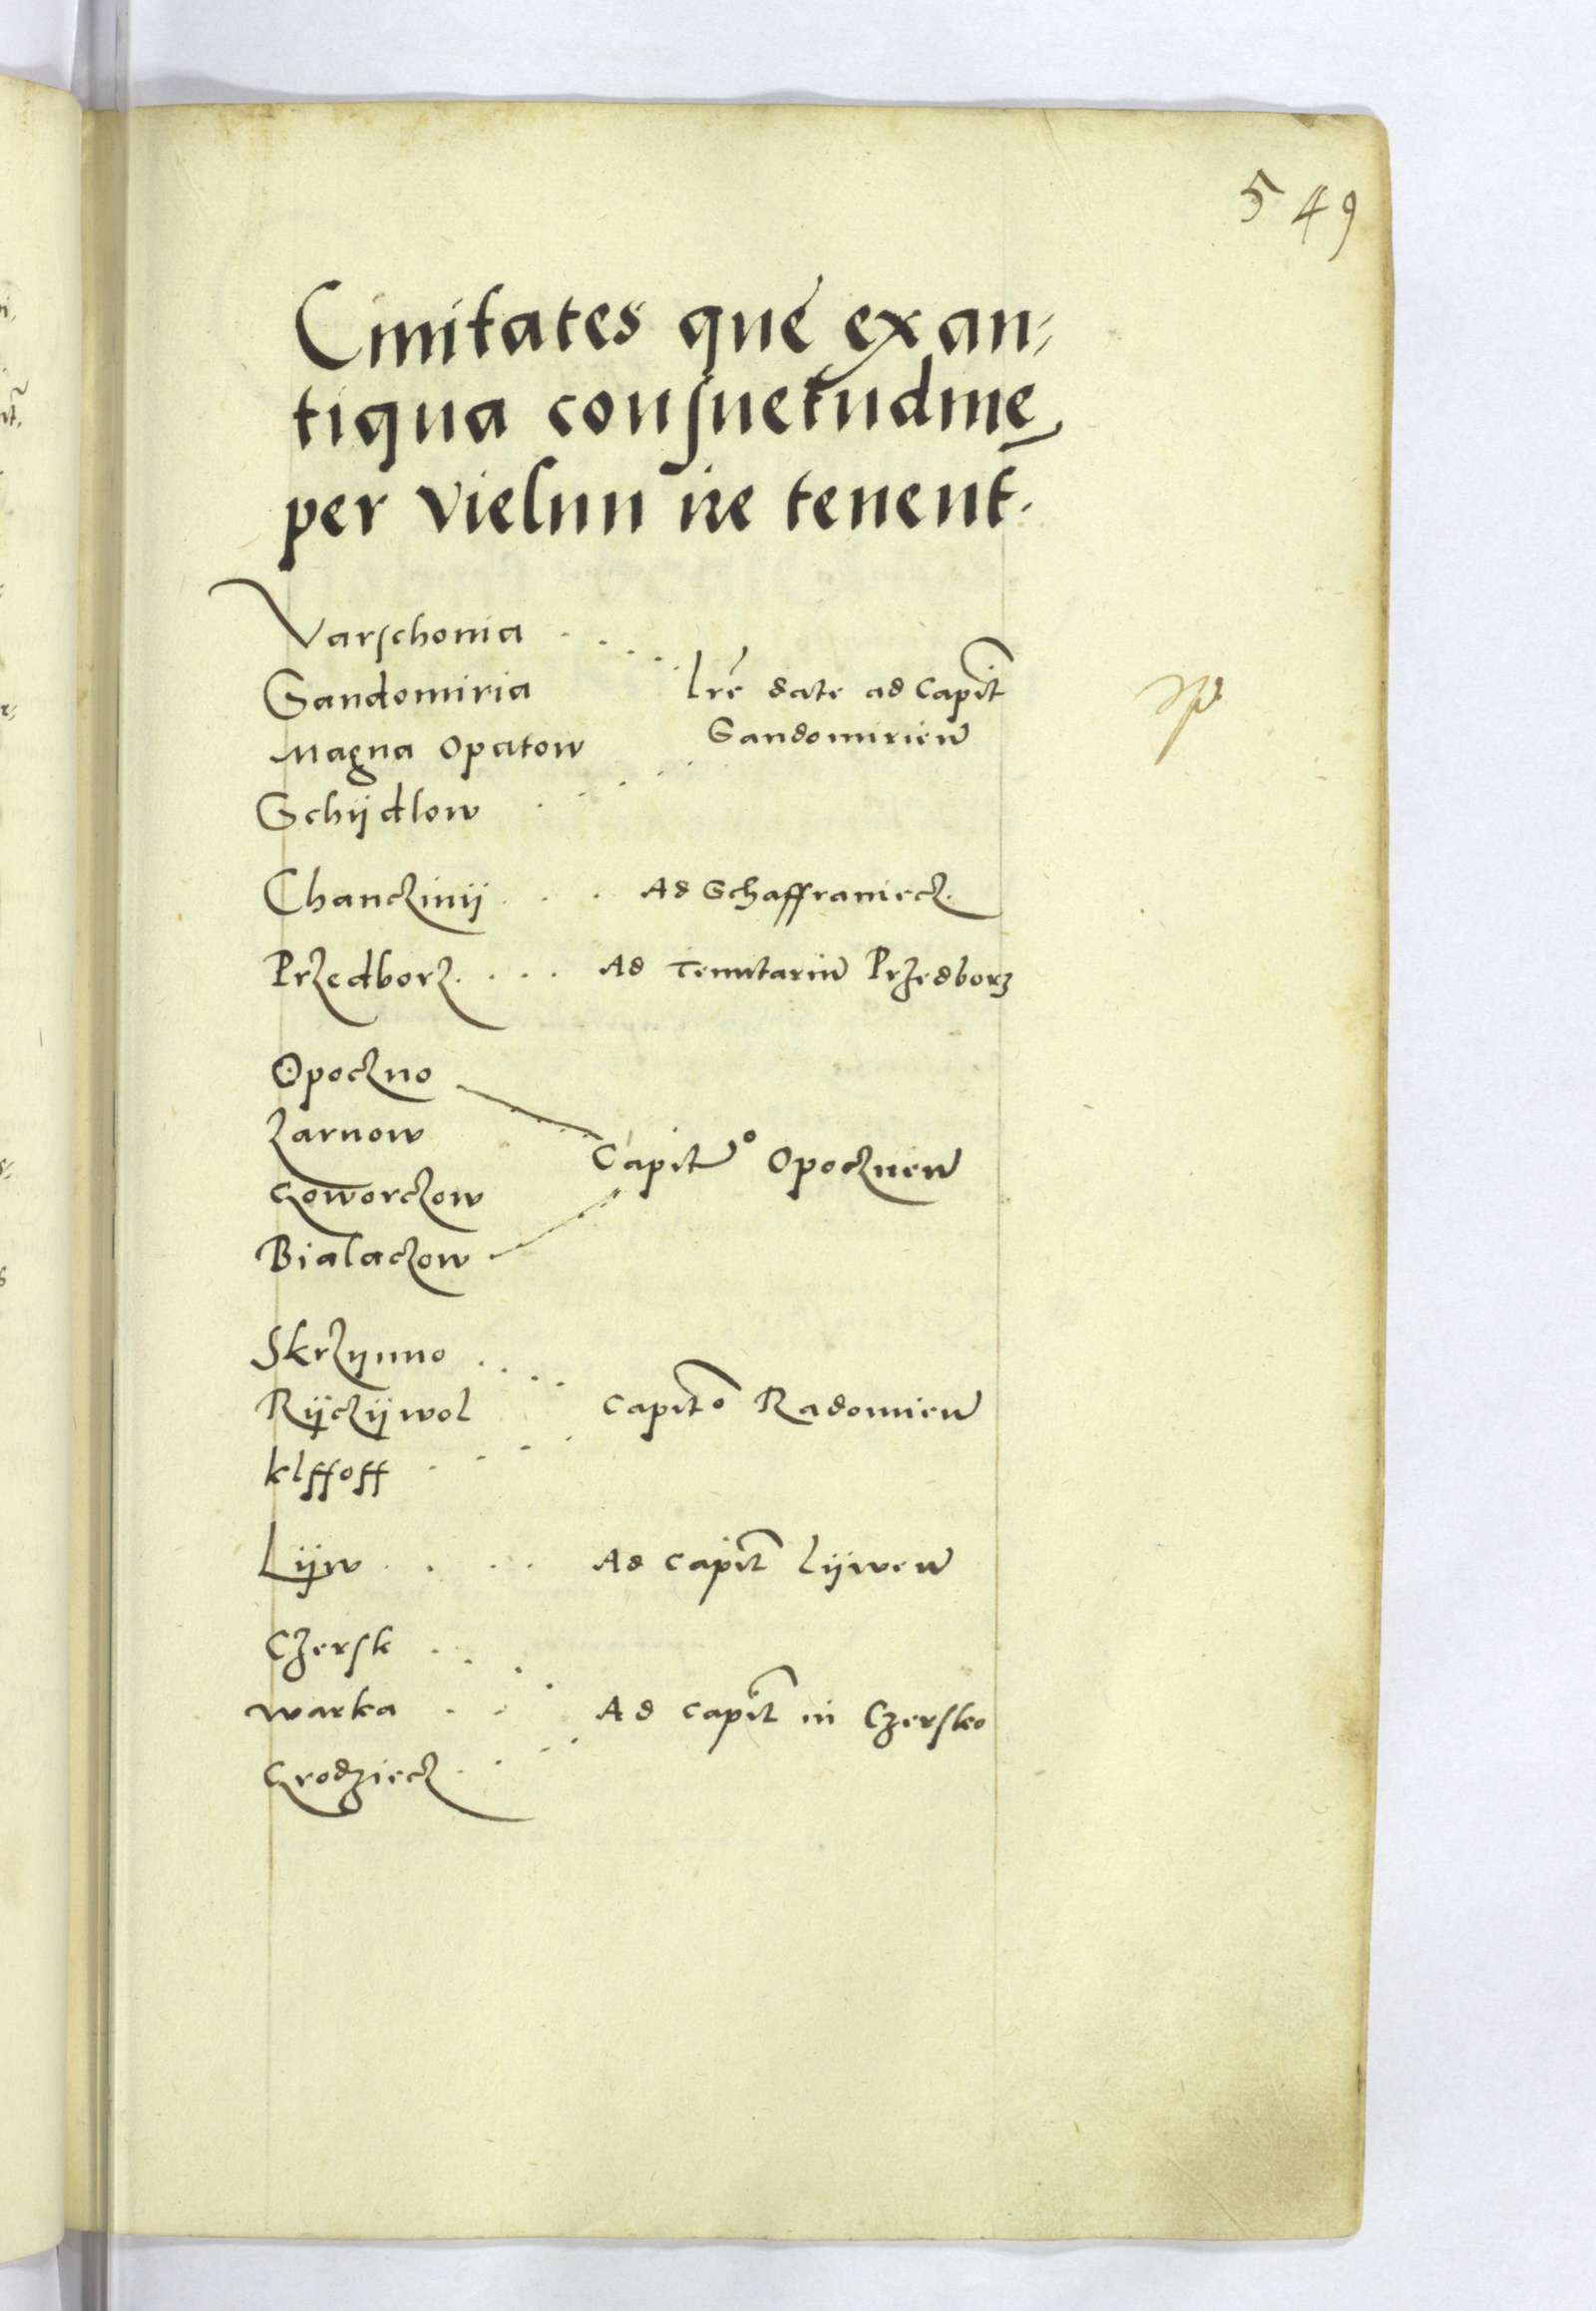 549
Civitates que ex an⸗
tiqua consuetudine
per vielun ire tenent.
Varschovia . . . .
Sandomiria lre date ad Capit
Magna Opatow Sandomirien
Schÿdlow . . . .
Chanczinÿ . . . Ad Schaffraniecz.
Przedborz . . . . Ad Tenutariu Przedborz
Opoczno
Zarnow
Capit° Opocznen
Goworczow
Bialaczow
Skrzynno . . . .
Rÿczÿwol capito Radomien
klffoff . . . .
Lÿw . . . . Ad capit Lÿwen
Czersk . . . .
warka . . . Ad capit in Czersko
Grodziecz . . . .